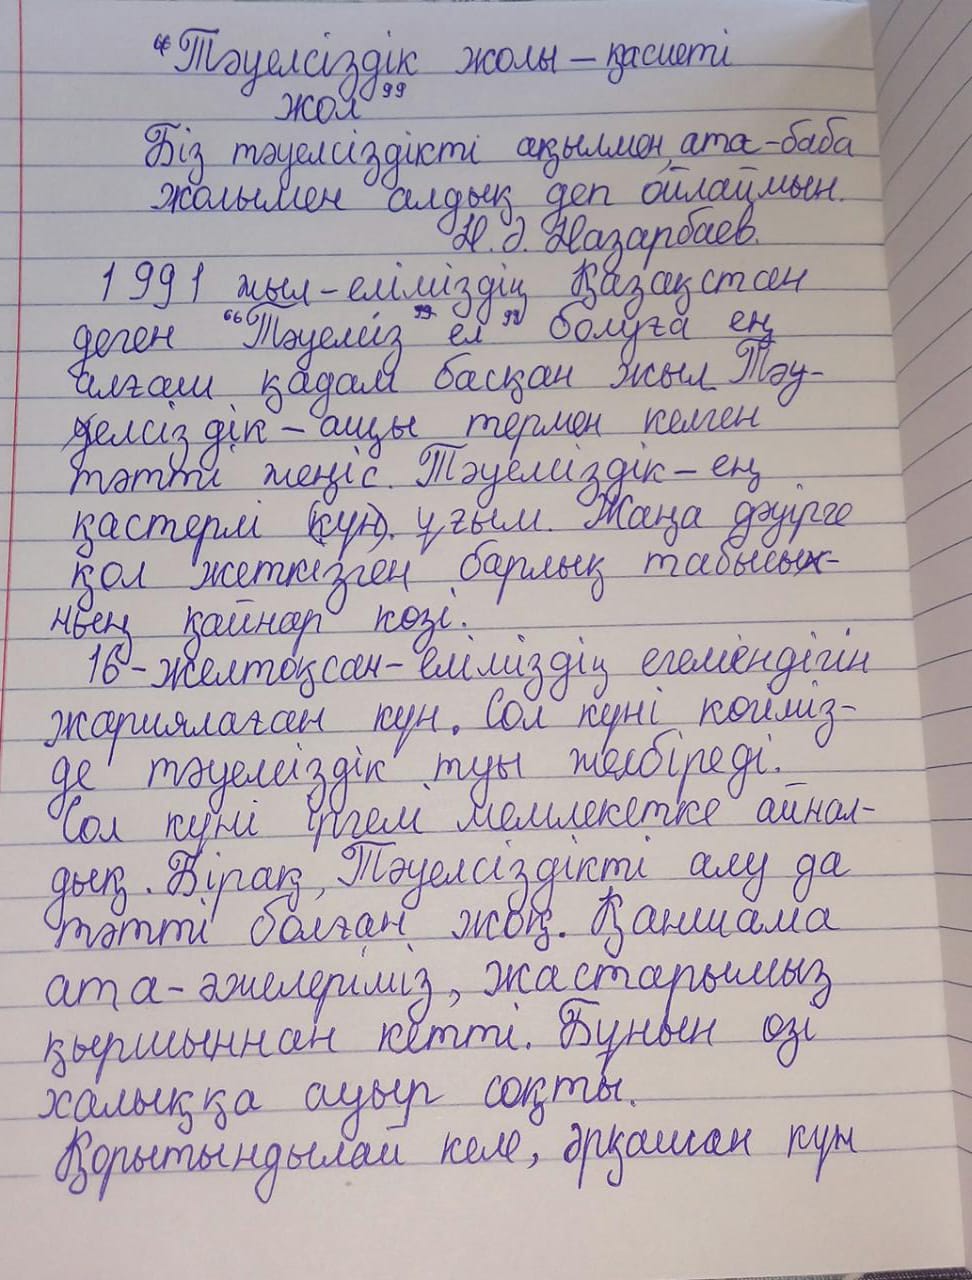 "Тәуелсіздік жолы – қасиеті
жол"
Біз тәуелсіздікті ақылмен, ата-баба
жолымен алдық деп ойлаймын.
Н.Ә. Назарбаев.
1991 жыл – еліміздің Қазақстан
деген "Тәуелсіз" ел" болуға ең
алғаш қадам басқан жыл. Тәу-
елсіздік – ащы термен келген
тәтті жеңіс. Тәуелсіздік – ең
қастерлі (күн). ұғым. Жаңа дәуірге
қол жеткізген барлық табысы-
ның қайнар көзі.
16-желтоқсан – еліміздің егемендігін
жариялаған күн. Сол күні көгіміз-
де тәуелсіздік туы желбіреді.
Сол күні іргелі мемлекетке айнал-
дық. Бірақ, Тәуелсіздікті алу да
тәтті болған жоқ. Қаншама
ата-әжелеріміз, жастарымыз
қыршыннан кетті. Бұнын өзі
халыққа ауыр соқты.
Қорытындылай келе, әрқашан күн